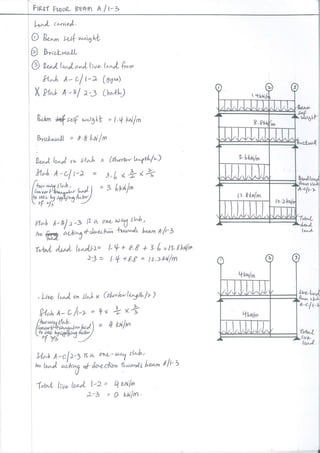 FIRST FLOOR BEAM A/1-3
Load carried
① Beam self weight
② Brickwall
③ Dead load and live load from
slab A-C/1-2 (gym)
X slab A-B/2-3 (bath)
Beam self weight = 1.4 kN/m
Brickwall = 8.8 kN/m
Dead load on slab x (shorter length/2)
Slab A-C/1-2 = 3.6 x
two way slab,
= 3.6 kN/m
Slab A-B/2-3 is a one way slab,
no load acting at direction towards beam A/1-3
Total dead load 1-2 = 1.4 + 8.8 + 3.6 = 13.8 kN/m
2-3 = 1.4 + 8.8 = 10.2 kN/m
- Live load on slab x (shorter length/2)
Slab A-C/1-2 = 4 x
two way slab,
= 4 kN/m
Slab A-C/2-3 is a one-way slab,
no load acting at direction towards beam A/1-3
Total live load 1-2 = 4 kN/m
2-3 = 0 kN/m
① ② ③
1.4 kN/m
Beam
self
weight
8.8 kN/m
Brickwall
3.6 kN/m
Dead load
from slab
A-C/1-2
13.8 kN/m
10.2 kN/m
Total
dead
load
① ② ③
4 kN/m
Live load
from slab
A-C/1-2
4 kN/m
Total
live
load